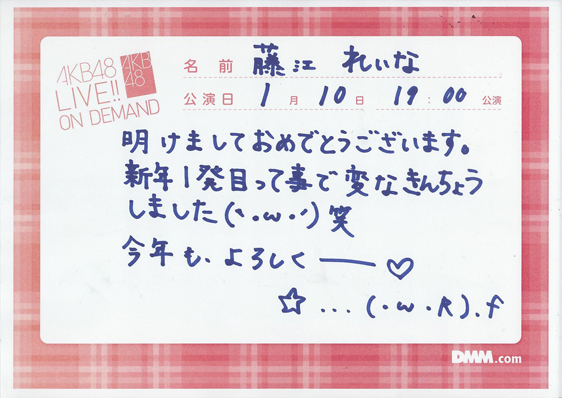 AKB48
LIVE!!
ON DEMAND
AKB
48
名前 藤江 れいな
公演日 1月10日 19:00 公演
明けましておめでとうございます。
新年1発目って事で変なきんちょう
しました(丶・ω・丶)笑
今年も、よろしく――♡
☆...(・ω・R).f
DMM.com